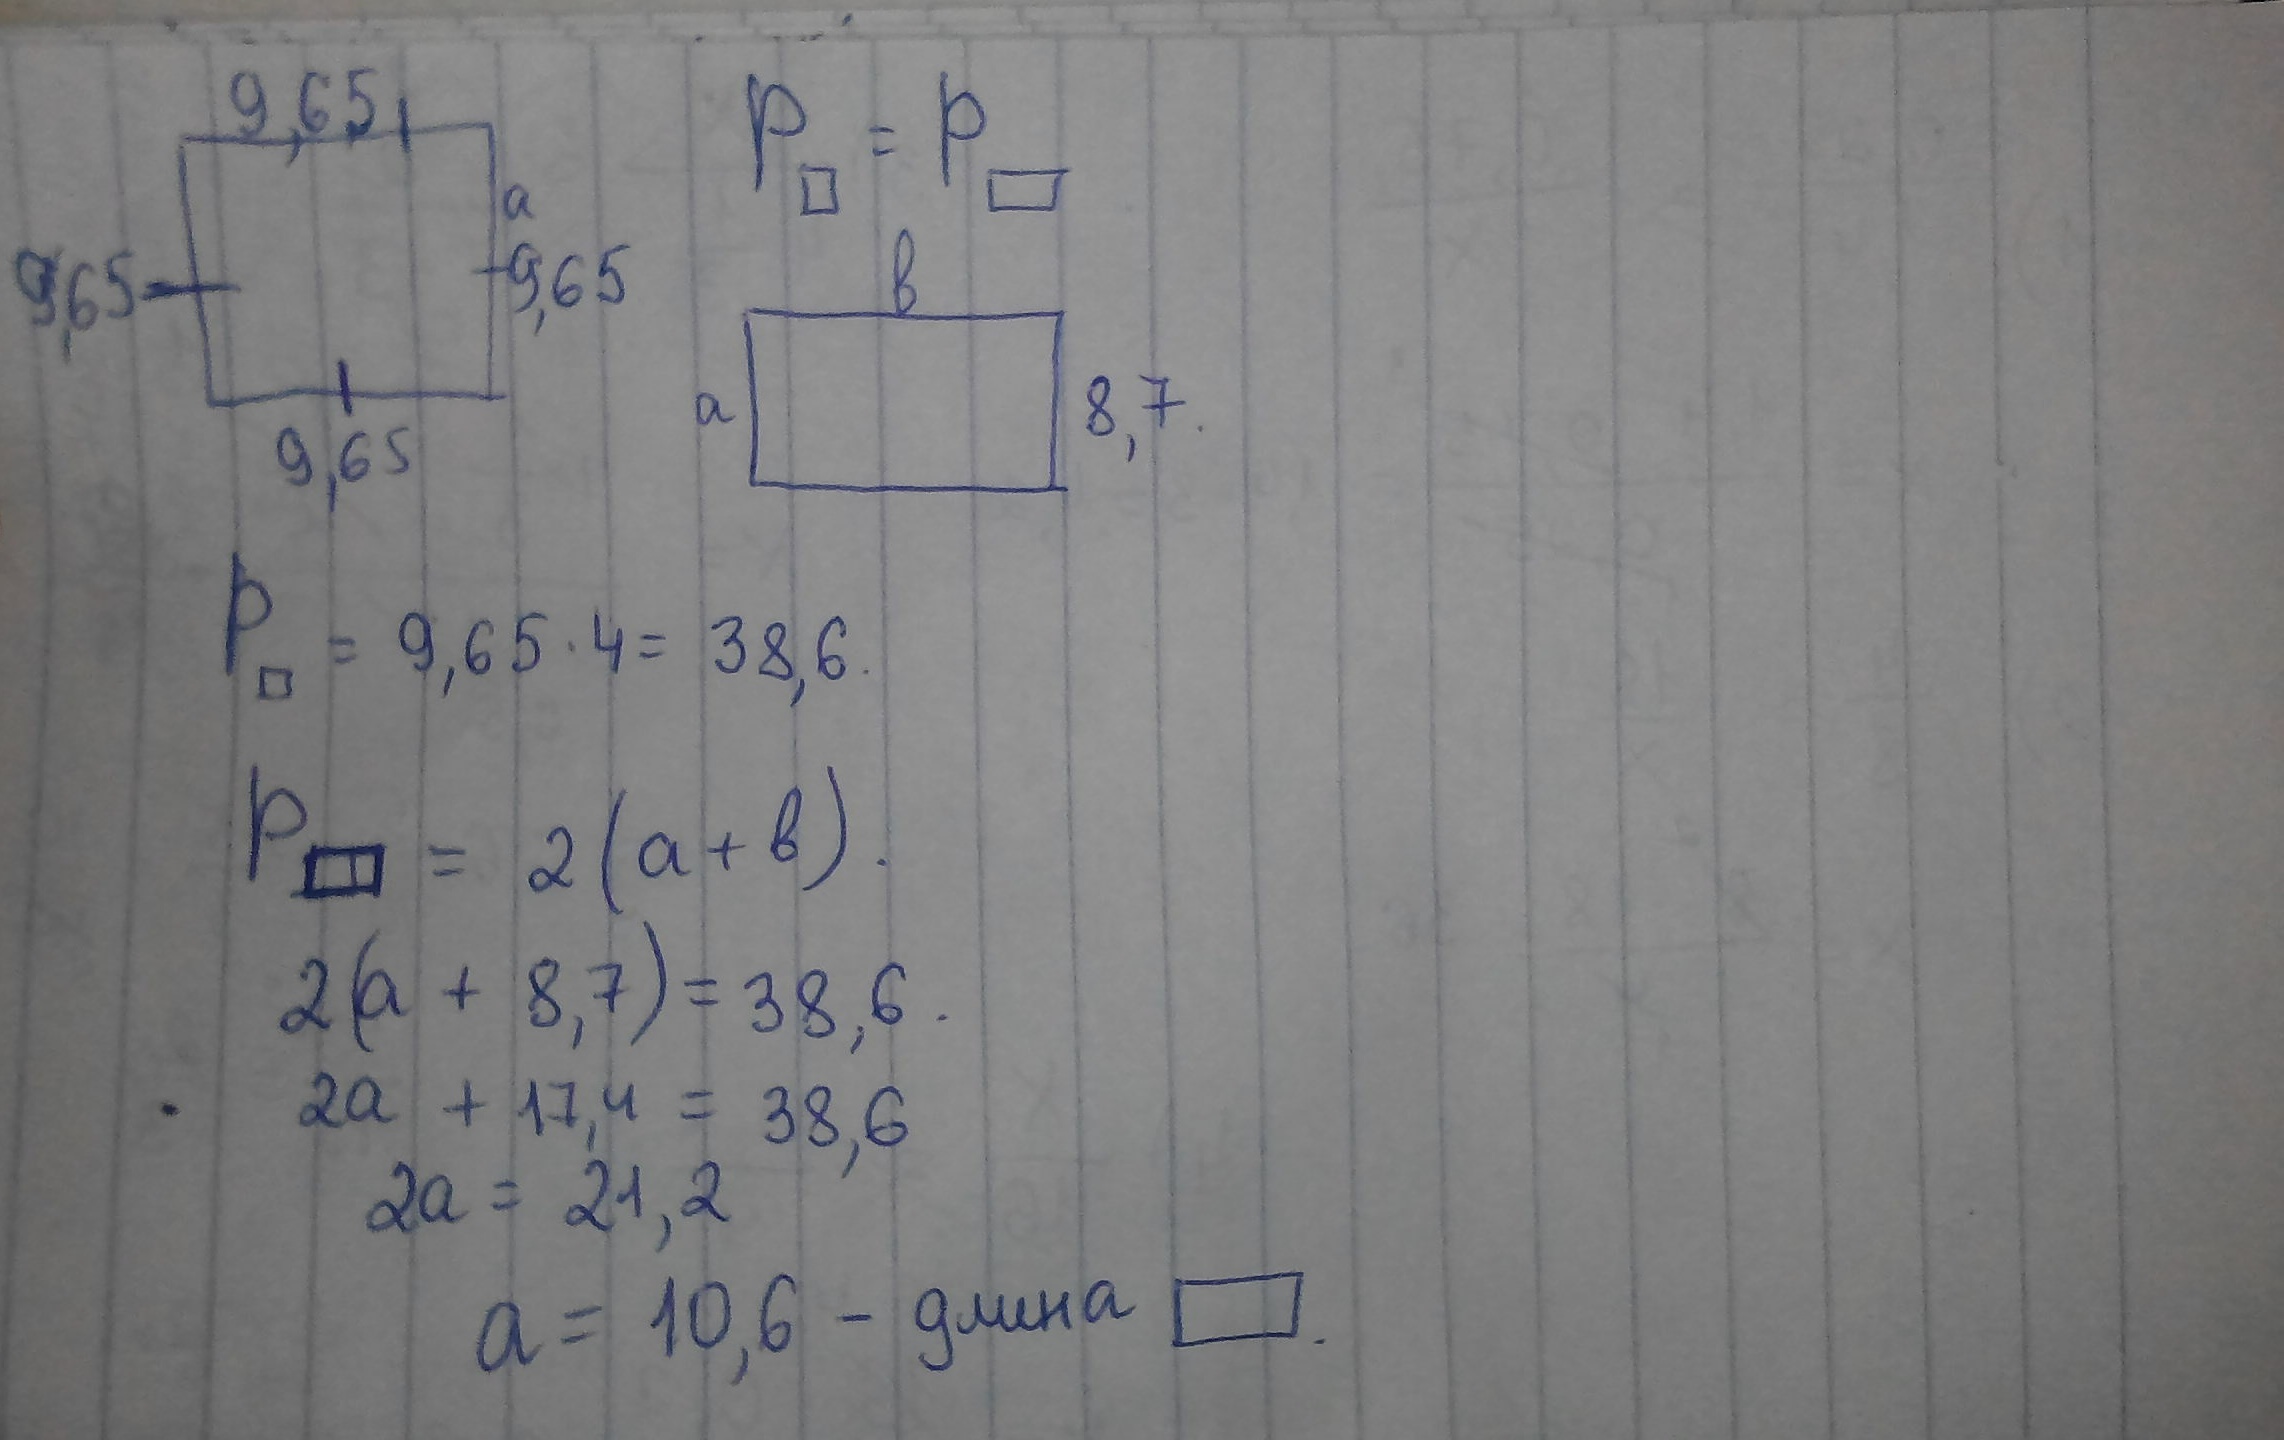 9,65
a
9,65
9,65
9,65
P□ = P▭
в
a
8,7.
P□ = 9,65 · 4 = 38,6.
P▭ = 2(a + в).
2(a + 8,7) = 38,6.
2a + 17,4 = 38,6
2a = 21,2
a = 10,6 - длина ▭.